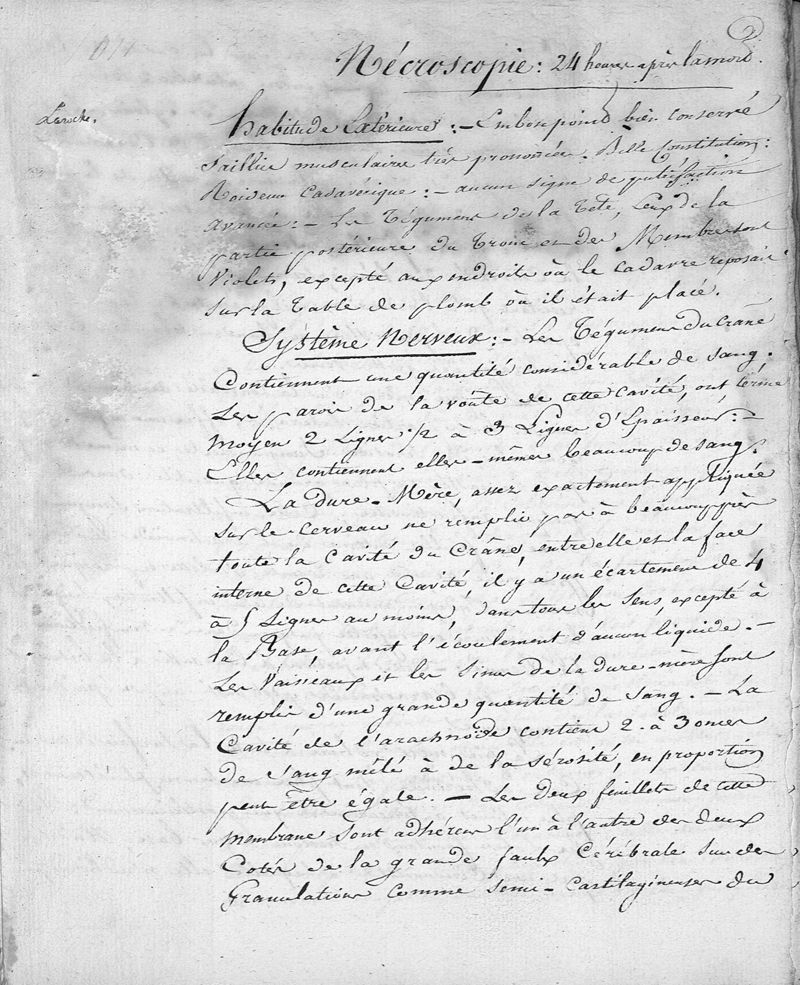 2
Nécroscopie : 24 heures après la mort.
Laroche.
habitude Extérieure : – Embonpoint bien conservé
Saillies musculaires très prononcées. Belle Constitution :
Roideur Cadavérique : – aucun signe de putréfaction
avancée : – Les Tégumens de la Tête, Ceux de la
partie postérieure du Tronc et des Membres sont
Violets, excepté aux endroits où le cadavre reposait
sur la Table de plomb où il était placé.
Système Nerveux : – Les Tégumens du Crâne
Contiennent une quantité considérable de sang.
Les parois de la voûte de cette Cavité, ont, terme
moyen 2 Lignes 1/2 à 3 Lignes d'Epaisseur : –
Elles contiennent elles-mêmes beaucoup de sang.
La dure-Mère, assez exactement appliquée
sur le Cerveau ne remplit pas à beaucoup près
toute la Cavité du Crâne, entre elle et la face
interne de cette Cavité, il y a un écartement de 4
à 5 Lignes au moins, dans tous les sens, excepté à
la Base, avant l'écoulement d'aucun liquide. –
Les Vaisseaux et les Sinus de la dure-mère sont
remplis d'une grande quantité de sang. – La
Cavité de l'arachnoïde contient 2 à 3 onces
de sang mêlé à de la sérosité, en proportion
peut être égale. – Les deux feuillets de cette
membrane sont adhérens l'un à l'autre des deux
Cotés de la grande faulx Cérébrale sur des
Granulations comme semi-cartilagineuses du